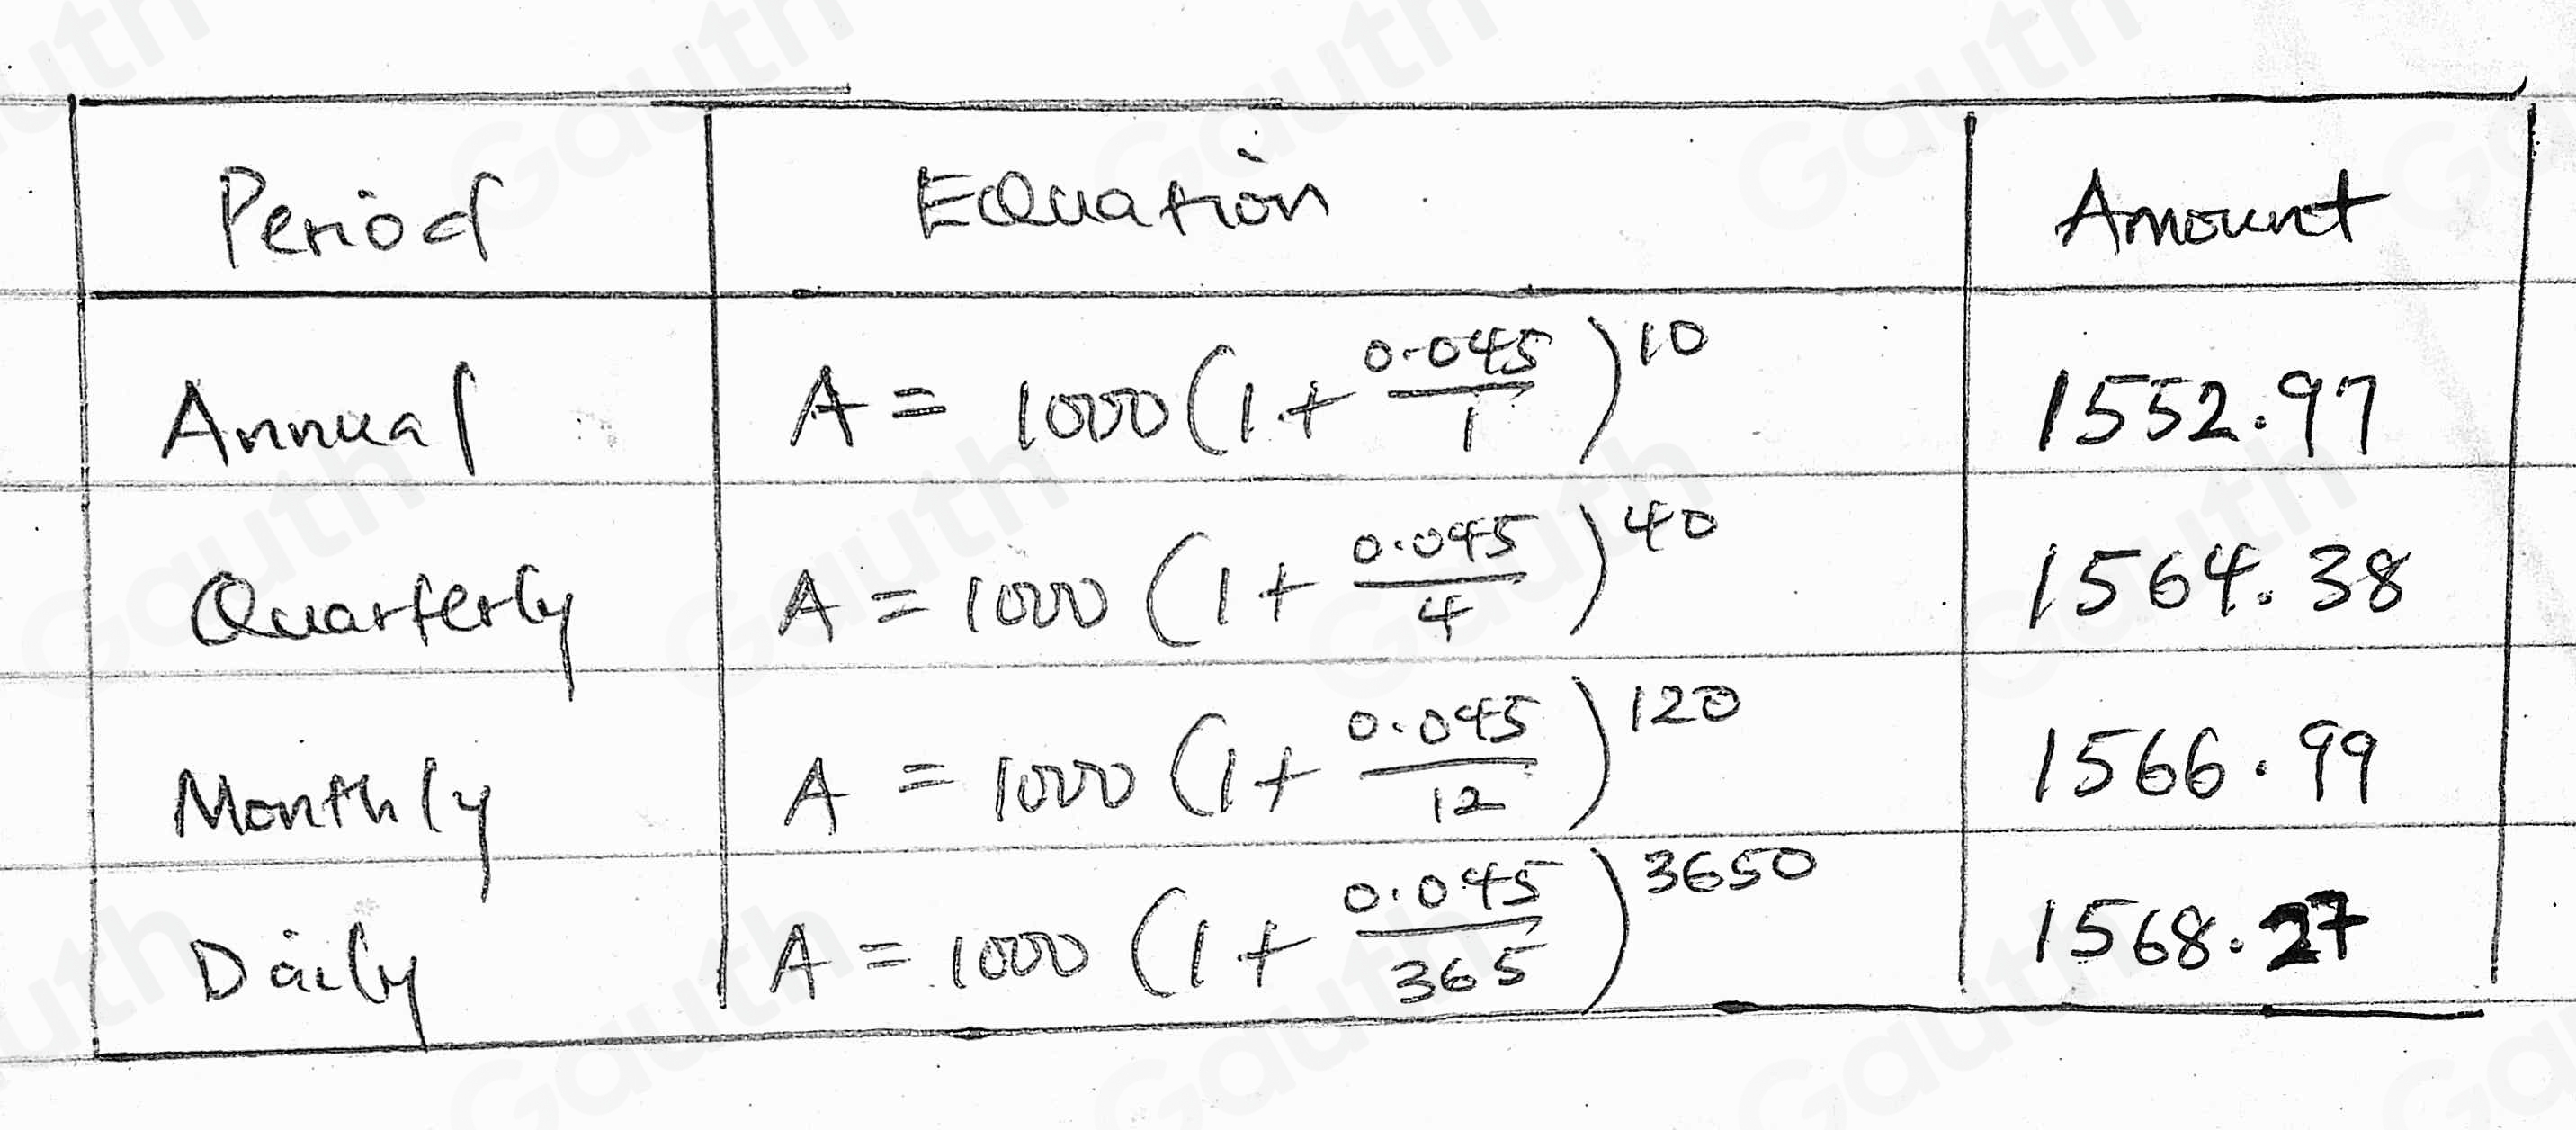 Period Equation Amount
Annual A = 1000(1 + 0.045/1)^10 1552.97
Quarterly A = 1000(1 + 0.045/4)^40 1564.38
Monthly A = 1000(1 + 0.045/12)^120 1566.99
Daily A = 1000(1 + 0.045/365)^3650 1568.27
Gauth